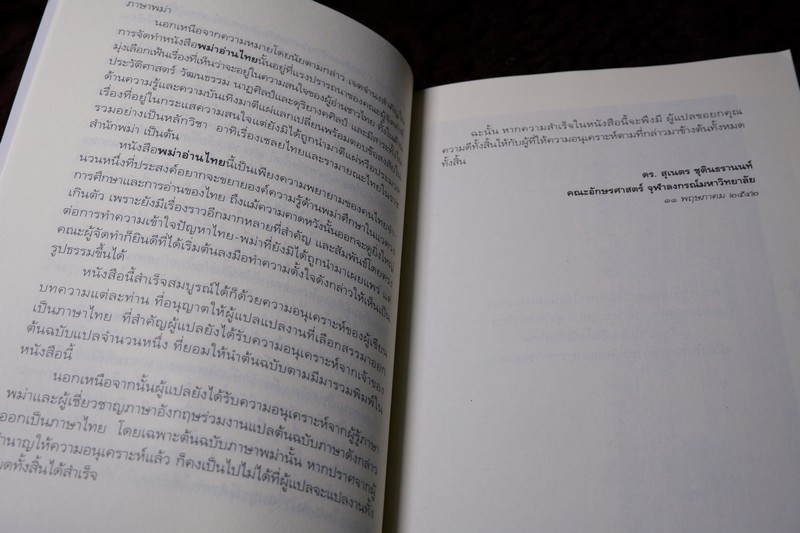 ภาษาพม่า
นอกเหนือจากความหมายโดยนัยตามกล่าว เจตจำนงสำคัญใน
การจัดทำหนังสือพม่าอ่านไทยนั้นอยู่ที่แรงปรารถนาของคณะผู้จัดทำที่
มุ่งเลือกเฟ้นเรื่องที่เห็นว่าจะอยู่ในความสนใจของผู้อ่านชาวไทย ทั้งในด้าน
ประวัติศาสตร์ วัฒนธรรม นาฏศิลป์และดุริยางคศิลป์ และมีสาระทั้งใน
ด้านความรู้และความบันเทิงมาตีแผ่แลกเปลี่ยนพร้อมตอบข้อสงสัยใน
เรื่องที่อยู่ในกระแสความสนใจแต่ยังมิได้ถูกนำมาตีแผ่หรือประมวล
รวมอย่างเป็นหลักวิชา อาทิเรื่องเชลยไทยและรามายณะไทยในราช
สำนักพม่า เป็นต้น
หนังสือพม่าอ่านไทยนี้เป็นเพียงความพยายามของคนไทยจำ
นวนหนึ่งที่ประสงค์อยากจะขยายองค์ความรู้ด้านพม่าศึกษาในแวดวง
การศึกษาและการอ่านของไทย ถึงแม้ความคาดหวังนั้นออกจะดูยิ่งใหญ่
เกินตัว เพราะยังมีเรื่องราวอีกมากหลายที่สำคัญ และสัมพันธ์โดยตรง
ต่อการทำความเข้าใจปัญหาไทย-พม่าที่ยังมิได้ถูกนำมาเผยแพร่ แต่
คณะผู้จัดทำก็ยินดีที่ได้เริ่มต้นลงมือทำความตั้งใจดังกล่าวให้เห็นเป็น
รูปธรรมขึ้นได้
หนังสือนี้สำเร็จสมบูรณ์ได้ก็ด้วยความอนุเคราะห์ของผู้เขียน
บทความแต่ละท่าน ที่อนุญาตให้ผู้แปลแปลงานที่เลือกสรรมาออก
เป็นภาษาไทย ที่สำคัญผู้แปลยังได้รับความอนุเคราะห์จากเจ้าของ
ต้นฉบับแปลจำนวนหนึ่ง ที่ยอมให้นำต้นฉบับตามมีมารวมพิมพ์ใน
หนังสือนี้
นอกเหนือจากนั้นผู้แปลยังได้รับความอนุเคราะห์จากผู้รู้ภาษา
พม่าและผู้เชี่ยวชาญภาษาอังกฤษร่วมงานแปลต้นฉบับภาษาดังกล่าว
ออกเป็นภาษาไทย โดยเฉพาะต้นฉบับภาษาพม่านั้น หากปราศจากผู้
ชำนาญให้ความอนุเคราะห์แล้ว ก็คงเป็นไปไม่ได้ที่ผู้แปลจะแปลงานทั้ง
หมดทั้งสิ้นได้สำเร็จ
ฉะนั้น หากความสำเร็จในหนังสือนี้จะพึงมี ผู้แปลขอยกคุณ
ความดีทั้งสิ้นให้กับผู้ที่ให้ความอนุเคราะห์ตามที่กล่าวมาข้างต้นทั้งหมด
ทั้งสิ้น
ดร. สุเนตร ชุตินธรานนท์
คณะอักษรศาสตร์ จุฬาลงกรณ์มหาวิทยาลัย
๑๑ พฤษภาคม ๒๕๔๒